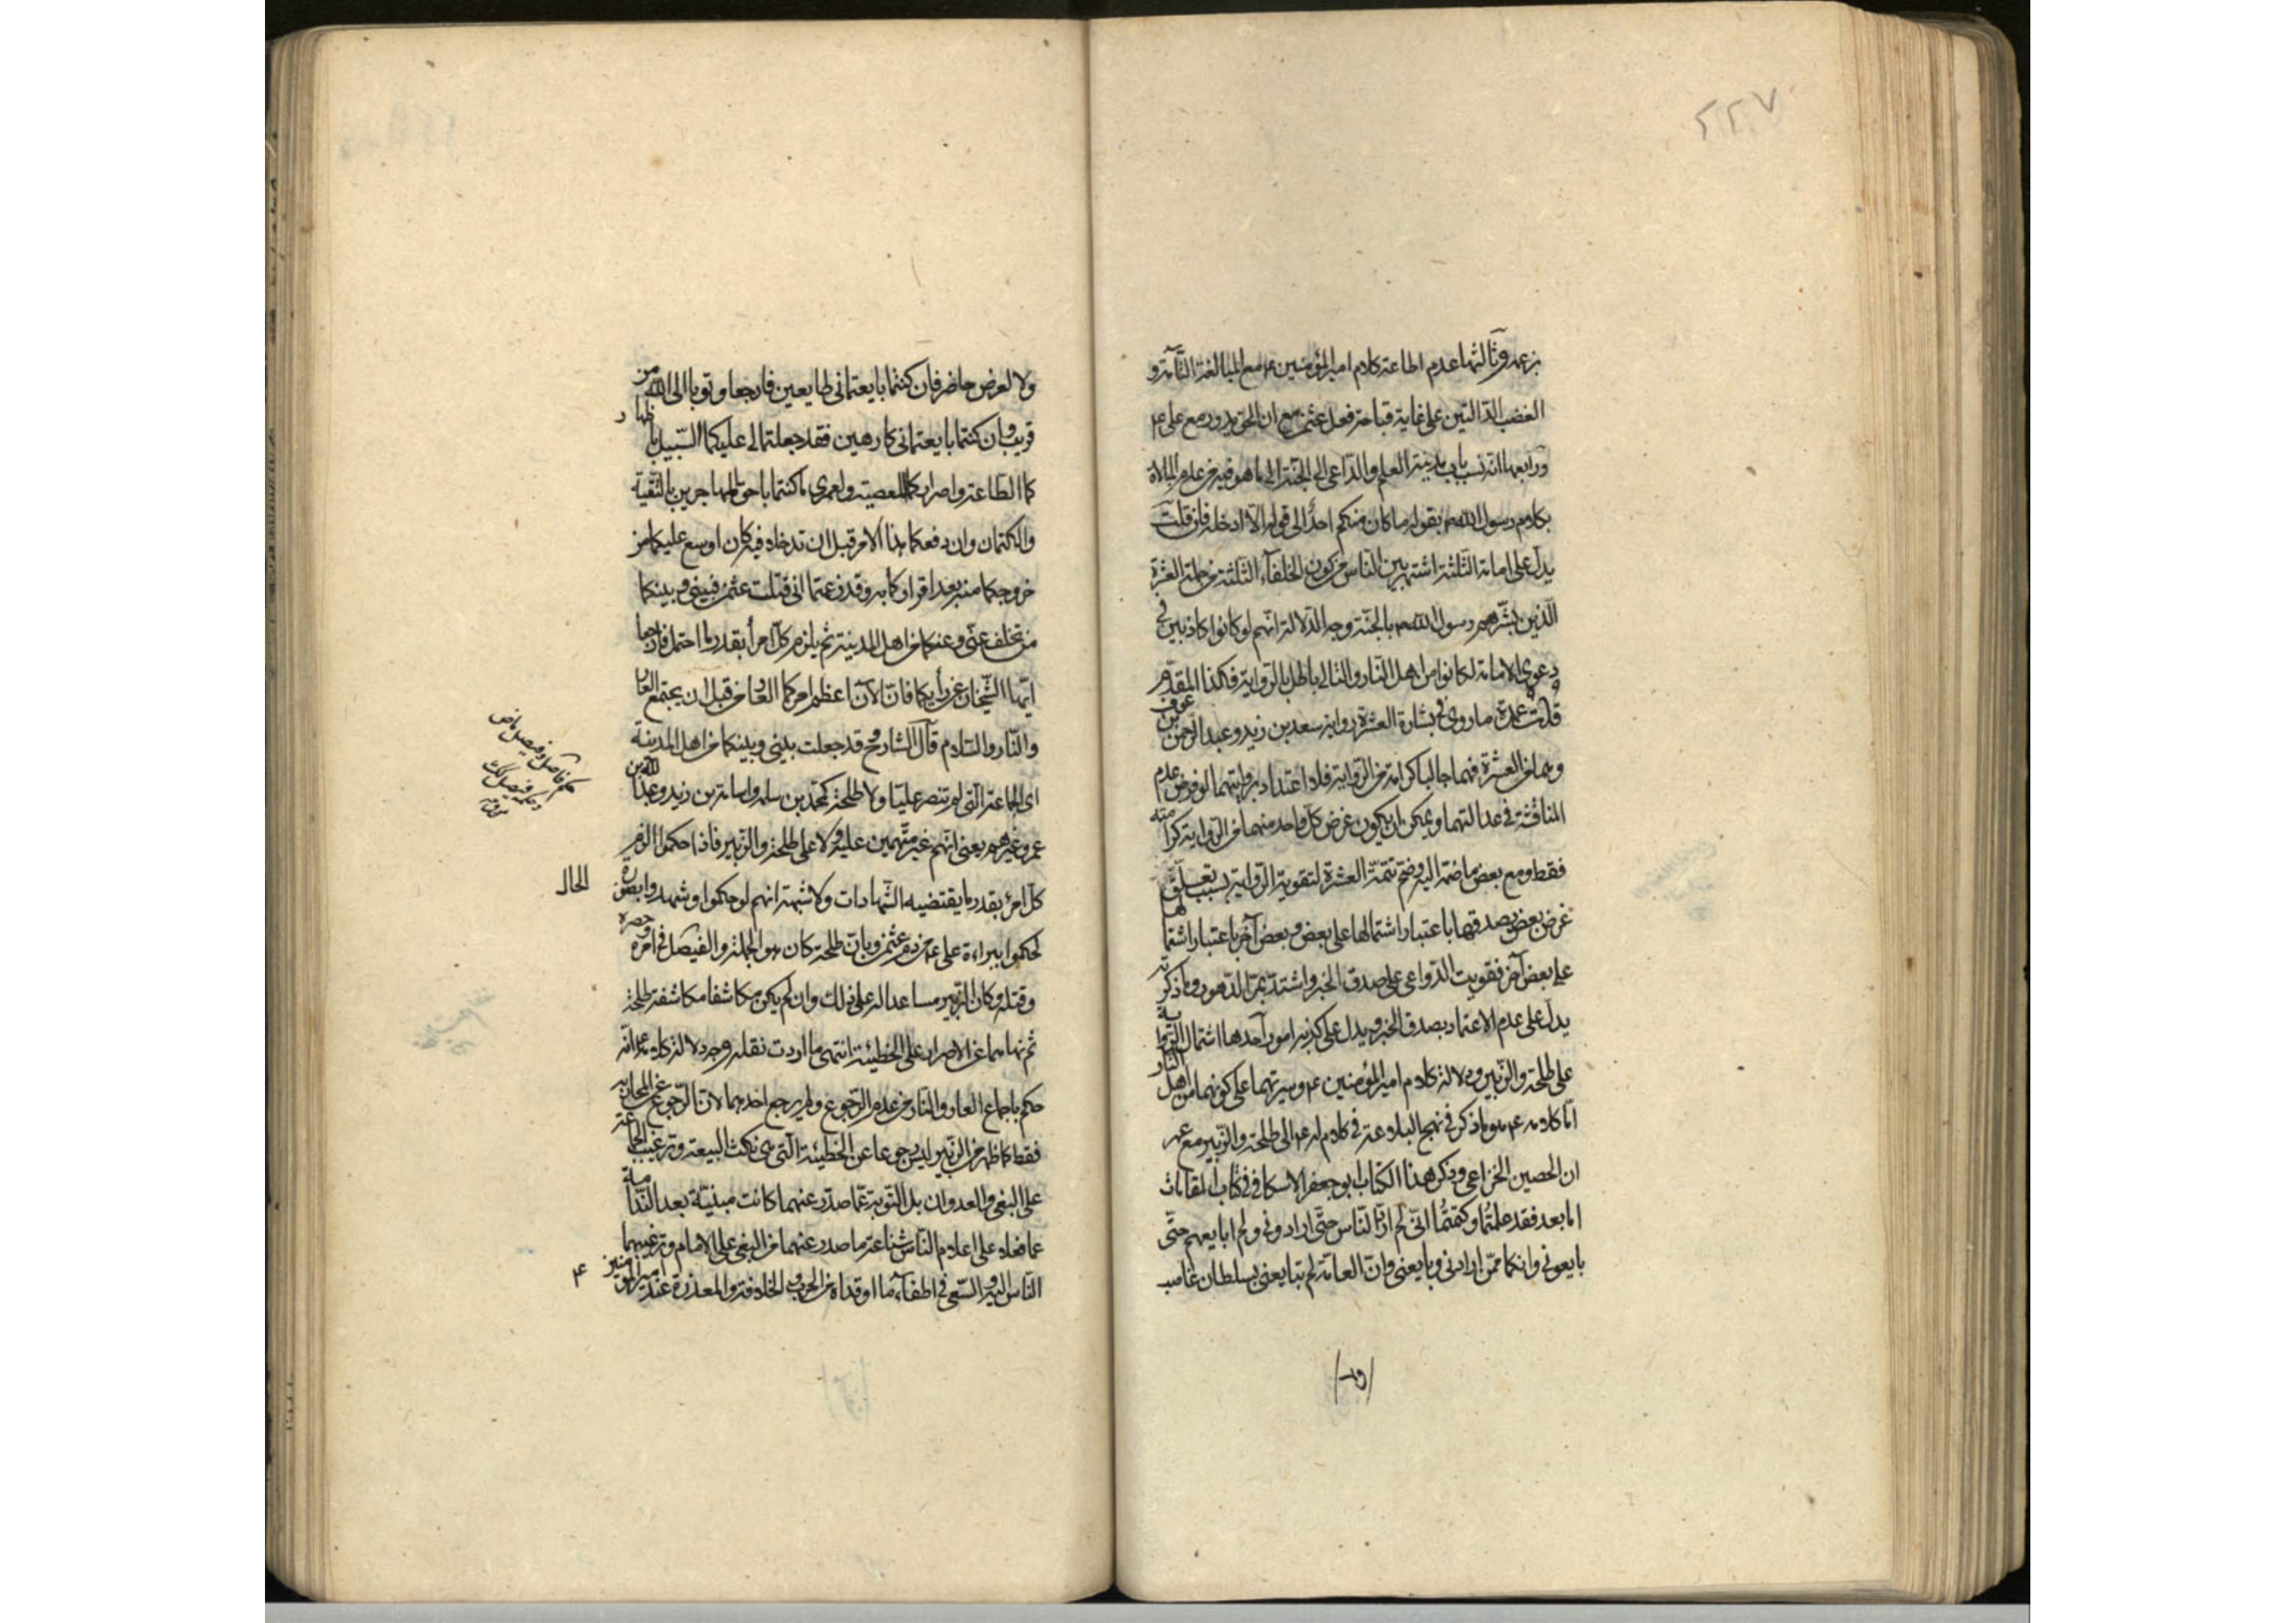 ٢٢٧
بزعمه وثالثها عدم اطاعة كلام امير المؤمنين ع مع المبالغة التامة و
الغضب الدالتين على غاية قباحة فعل عثمن مع ان الحق يدور مع على ع
ورابعها انه نسب باب مدينة العلم والداعى الى الجنة الى ما هو فيه من عدم المبالاة
بكلام رسول الله ص بقوله ما كان منكم احد الى قوله الا ادخله فان قلت
يدل على امامة الثلثة اشتهر بين الناس من كون الخلفاء الثلثة من جملة العشرة
الذين بشرهم رسول الله ص بالجنة وجه الدلالة انهم لو كانوا كاذبين فى
دعوى الامامة لكانوا من اهل النار والتالى باطل بالرواية فكذا المقدم
قلت عمدة ما روى فى بشارة العشرة رواية سعد بن زيد وعبد الرحمن بن عوف
وهما من العشرة فهما جالبا كرامة من الرواية فلا اعتداد بروايتهما لو فرض عدم
المناقشة فى عدالتهما ويمكن ان يكون غرض كل واحد منهما من الرواية كرامته
فقط ومع بعض ما ضمه اليه وضم تتمة العشرة لتقوية الرواية بسبب تعلق
غرض بعض بصدقها باعتبار اشتمالها على بعض وبعض آخر باعتبار اشتمالها
على بعض آخر فقويت الدواعى على صدق الخبر واشتد بمر الدهور وما ذكرته
يدل على عدم الاعتماد بصدق الخبر ويدل على كذبه امور احدها اشتمال الرواية
على طلحة والزبير ودلالة كلام امير المؤمنين ع وسيرتهما على كونهما من اهل النار
اما كلامه ع هو ما ذكر فى نهج البلاغة فى كلام له ع الى طلحة والزبير مع عمر
ان الحصين الخزاعى وذكر هذا الكتاب ابو جعفر الاسكافى فى كتاب المقامات
اما بعد فقد علمتما وكتمتما انى لم ارد الناس حتى ارادونى ولم ابايعهم حتى
بايعونى وانكما ممن ارادنى وبايعنى وان العامة لم تبايعنى بسلطان غاصب
ولا لعرض حاضر فان كنتما بايعتمانى طايعين فارجعا وتوبا الى الله من
قريب وان كنتما بايعتمانى كارهين فقد جعلتما لى عليكما السبيل باظهار
كما الطاعة واسراركما المعصية ولعمرى ما كنتما باحق المهاجرين بالتقية
والكتمان وان دفعكما هذا الامر قبل ان تدخلا فيه كان اوسع عليكما من
خروجكما منه بعد اقراركما به وقد زعمتما انى قتلت عثمن فبينى وبينكما
من تخلف عنى وعنكما من اهل المدينة ثم يلزم كل امرأ بقدر ما احتمل فارجعا
ايها الشيخان عن رأيكما فان الآن اعظم امركما العار من قبل ان يجتمع العار
والنار والسلام قال الشارح قد جعلت بينى وبينكما من اهل المدينة
اى الجماعة التى لم تنصر عليا ولا طلحة كمحمد بن سلمة واسامة بن زيد وعبد الله بن
عمر وغيرهم يعنى انهم غير متهمين عليه ولا على طلحة والزبير فاذا حكموا الزم
كل امرئ بقدر ما يقتضيه الشهادات ولا شبهة انهم لو حكموا وشهدوا بصورة
الحال
لحكموا ببراءة على ع من دم عثمن وبان طلحة كان هو الجملة والفيصل فى امره وحصره
وقتله وكان الزبير مساعدا له على ذلك وان لم يكن مكاشفا مكاشفة طلحة
ثم نهاهما عن الاصرار على الخطيئة انتهى ما اردت نقله وجه دلالة كلامه ع انه
حكم باجماع العار والنار من عدم الرجوع ولم يرجع احدهما لان الرجوع عن المحاربة
فقط كما ظهر من الزبير ليس رجوعا عن الخطيئة التى هى نكث البيعة وترغيب الجماعة
على البغى والعدوان بل التوبة عما صدر عنهما كانت مبنية بعد الندامة
عما فعلا على اعلام الناس شناعة ما صدر عنهما من البغى على الامام وترغيبهما
الناس اليه والسعى فى اطفاء ما اوقداه من الحرب والخلافة والمعذرة عند امير المؤمنين ع